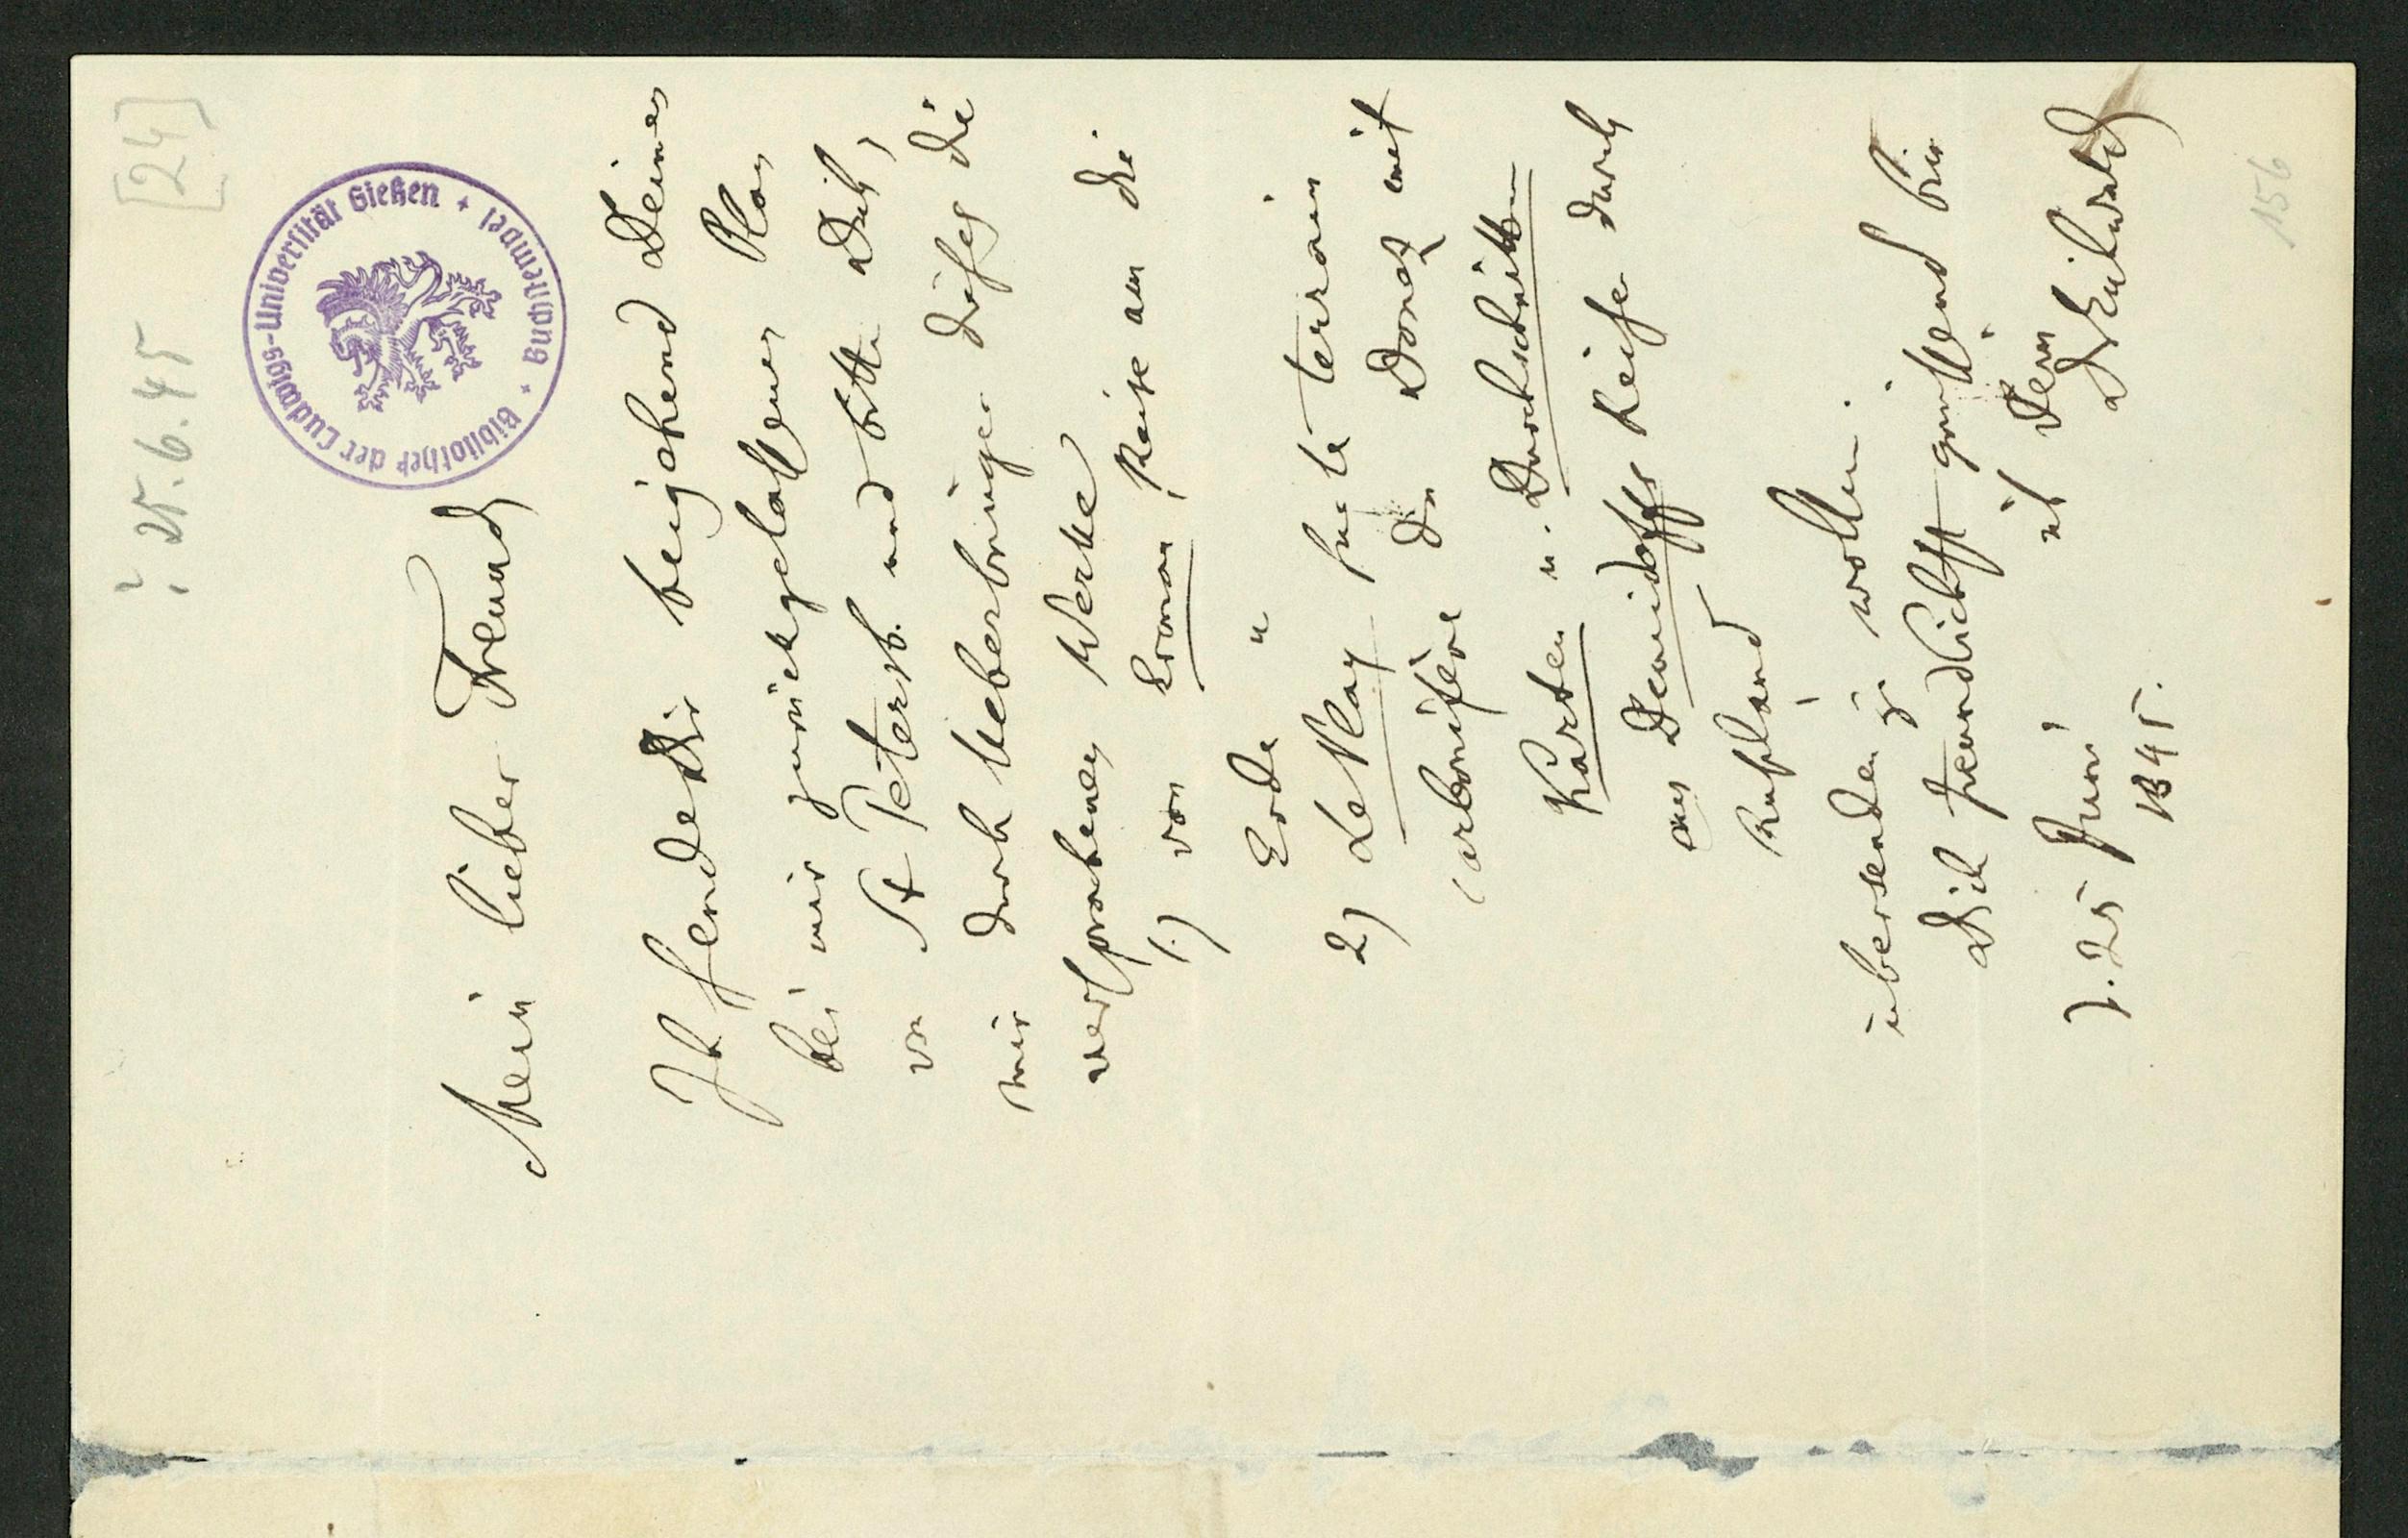 [24]
: 25.6.45
Bibliothek der Ludwigs-Universität Gießen + Buchnemdel +
Mein lieber Freund
Ich sende Dir beigehend Deinen
bei mir zurückgelassenen Plan
von St Petersb. und bitte Dich,
mir durch Ueberbringer dieses die
versprochenen Werke
1.) von Erman, Reise um die
Erde "
2) Le Play sur le terrain
carbonifère du Donez mit
Karten u. Durchschnitten
aus Demidoffs Reise durch
Rußland
übersenden zu wollen.
Dich freundlichst grüßend bin
ich Dein
d. 25 Juni DrEichwald
1845.
156